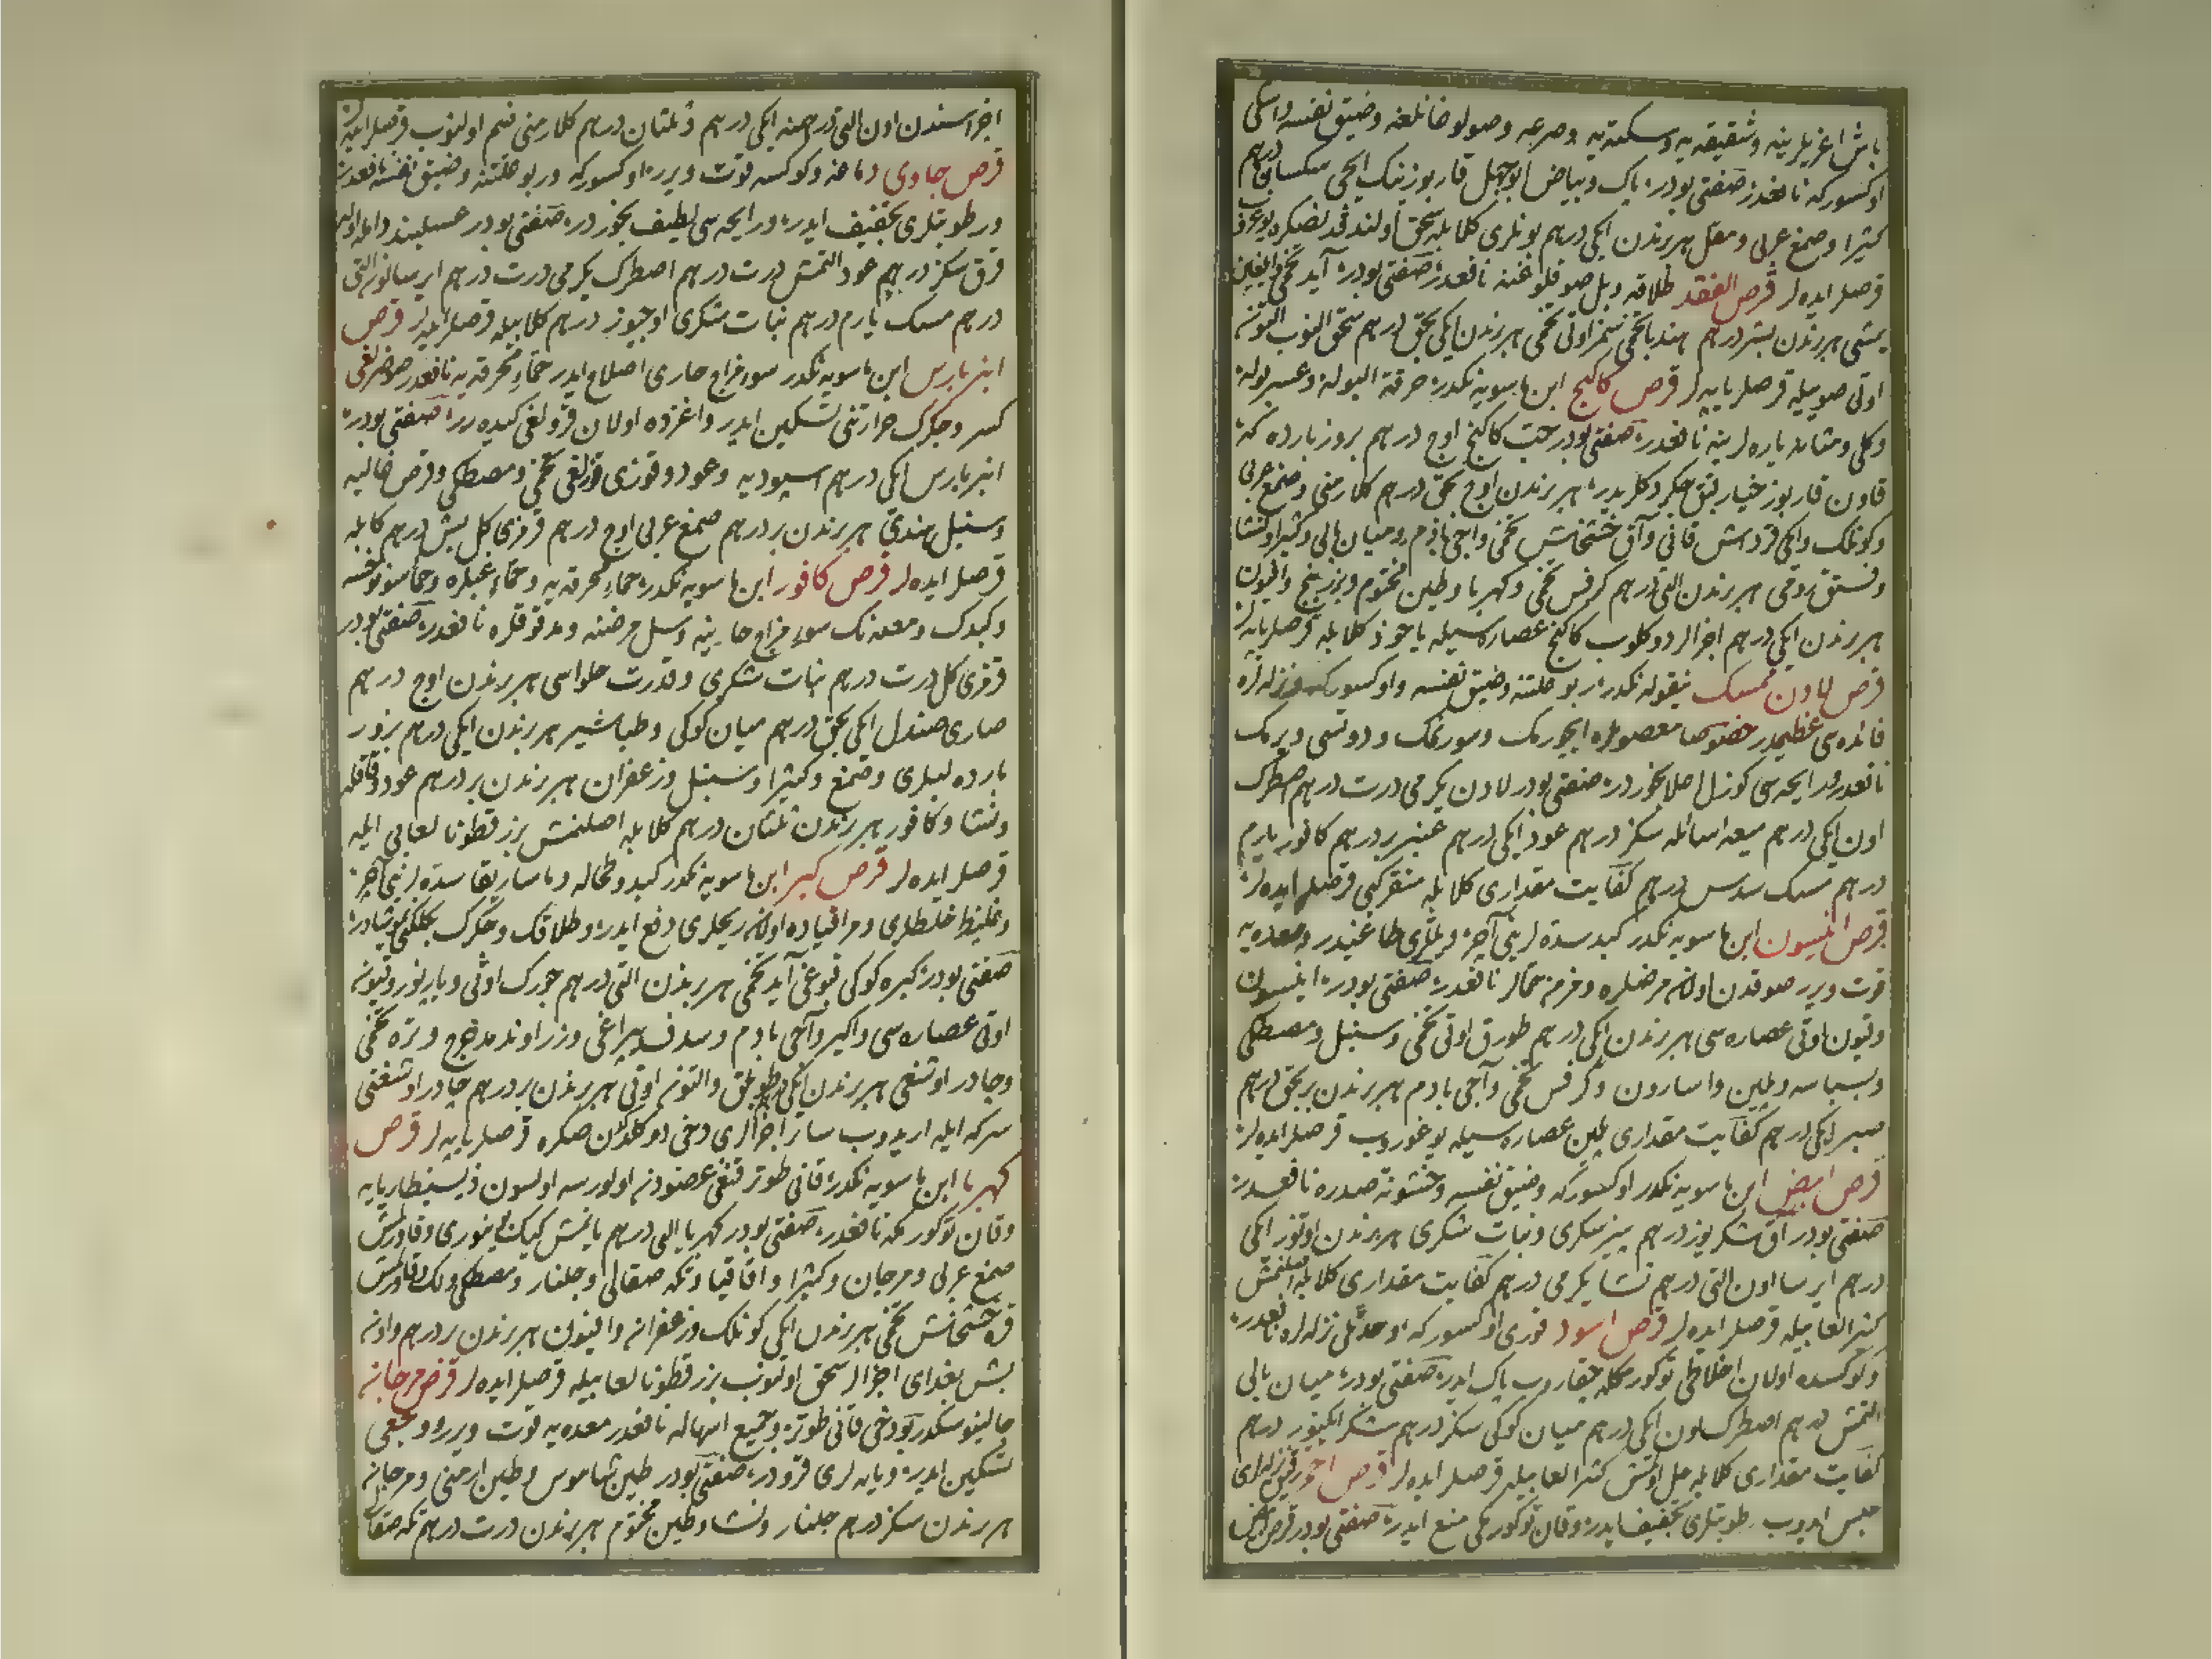 باش اغریلرینه وشقیقه یه وسکته یه وصرعه وصولوخانلغنه وضیق نفسه واسکی
اوکسورکه نافعدر صنعتی بودر پاک وبیاض ابوجهل قاربوزینک ایچی سکسان درهم
کثیرا وصمغ عربی ومقل هر برندن ایکی درهم بونلری کلابله سحق اولندقدنصکره
قرصلر ایده لر قرص الفقد طلاقه وبل صوفلوغنه نافعدر صنعتی بودر آید تخمی
یمشی هر برندن بشر درهم هندبا تخمی سمزاوتی تخمی هر برندن ایکی بچق درهم سحق النوب التون
اوتی صوییله قرصلر یاپه لر قرص کاکنج ابن ماسویه نکدر حرقة البوله وعسر بوله
وکلی ومثانه یاره لرینه نافعدر صنعتی بودر حب کاکنج اوج درهم بزور بارده که
قاون قاربوز خیار قبق چکردکلریدر هر برندن اوج بچق درهم کلارمنی وصمغ عربی
وکونلک وایکی قرداش قانی وآق خشخاش تخمی واجی بادم ومیان بالی وکثیرا ونشا
وفستق رومی هر برندن التی درهم کرفس تخمی وکهربا وطین مختوم وبزر بنج وافیون
هر برندن ایکی درهم اجزالر دوکلوب کاکنج عصاره سیله یاخود کلابله قرصلر یاپه لر
قرص لادن ممسک نیقوله نکدر ربو علتنه وضیق نفسه واوکسورکه ونزله لره
فائده سی عظیمدر خصوصا معصوملره ایچورمک وسورتمک ودوتسی ویرمک
نافعدر ورایحه سی کوزل اعلا بخوردر صنعتی بودر لادن یکرمی درت درهم اصطرک
اون ایکی درهم میعه سائله سکز درهم عود ایکی درهم عنبر بر درهم کافور یارم
درهم مسک سدس درهم کفایت مقداری کلابله منقر کبی قرصلر ایده لر
قرص انیسون ابن ماسویه نکدر کبد سده لرینی آچر ویللری طاغیدر ومعده یه
قوت ویرر صوقدن اولان مرضلره ومزمن حمالر نافعدر صنعتی بودر انیسون
وقیون اوتی عصاره سی هر برندن ایکی درهم طورق اوتی تخمی وسنبل ومصطکی
وبسباسه ویلین واسارون وکرفس تخمی وآجی بادم هر برندن بر بچق درهم
صبر ایکی درهم کفایت مقداری یلین عصاره سیله یوغوروب قرصلر ایده لر
قرص ابیض ابن ماسویه نکدر اوکسورکه وضیق نفسه وخشونه صدره نافعدر
صنعتی بودر آق شکر یوز درهم پنیر شکری ونبات شکری هر برندن اوتوز ایکی
درهم ایرسا اون التی درهم نشا یکرمی درهم کفایت مقداری کلابله اصلنمش
کثیرا لعابیله قرصلر ایده لر قرص اسود قوری اوکسورکه اوحدتلی نزله لره نافعدر
وکوکسده اولان اخلاطی توکورمکله چیقاروب پاک ایدر صنعتی بودر میان بالی
التمش درهم اصطرک اون ایکی درهم میان کوکی سکز درهم شکر ایکیوز درهم
کفایت مقداری کلابله حل اولنمش کثیرا لعابیله قرصلر ایده لر قرص احمر رقیق نزله لری
حبس ایدوب رطوبتلری تجفیف ایدر وقان توکورمکی منع ایدر صنعتی بودر قرص ابیض
اجزاسندن اون التی درهمنه ایکی درهم وثلثان درهم کلارمنی ضم اولنوب قرصلر ایده لر
قرص جاوی دماغه وکوکسه قوت ویرر اوکسورکه وربو علتنه وضیق نفسه نافعدر
ورطوبتلری تجفیف ایدر ورایحه سی لطیف بخوردر صنعتی بودر عسلبند
قرق سکز درهم عود التمش درت درهم اصطرک یکرمی درت درهم ایرسا اوتوز التی
درهم مسک یارم درهم نبات شکری اوچیوز درهم کلابیله قرصلر ایده لر قرص
انبرباریس ابن ماسویه نکدر سوء مزاج حاری اصلاح ایدر حماء محرقه یه نافعدر صوصزلغی
کسر وجکرک حرارتنی تسکین ایدر واغزده اولان قرولغی کیده رر صنعتی بودر
انبرباریس ایکی درهم اسپودیه وعود وقوزی قولاغی تخمی ومصطکی وقرص غالیه
وسنبل هندی هر برندن بر درهم صمغ عربی اوج درهم قرمزی کل بش درهم کلابله
قرصلر ایده لر قرص کافور ابن ماسویه نکدر حماء محرقه یه وحماء غبلره وحما سونوخسه
وکبدک ومعده نک سوء مزاج حارینه وسل مرضنه ومدقوقلره نافعدر صنعتی بودر
قرمزی کل درت درهم نبات شکری وقدرت حلواسی هر برندن اوج درهم
صاری صندل ایکی بچق درهم میان کوکی وطباشیر هر برندن ایکی درهم بزور
بارده لبلری وصمغ وکثیرا وسنبل وزعفران هر برندن بر درهم عود وقاقله
ونشا وکافور هر برندن ثلثان درهم کلابله اصلنمش بزر قطونا لعابی ایله
قرصلر ایده لر قرص کبر ابن ماسویه نکدر کبد وطحاله وماساریقا سده لرینی آچر
وغلیظ خلطلری ومراقیاده اولان ریحلری دفع ایدر وطلاقک وجکرک
صنعتی بودر کبره کوکی قبوغی آید تخمی هر برندن التی درهم چورک اوتی ویارپوز وقیون
اوتی عصاره سی واکیر وآجی بادم وسدف یپراغی وزراوند مدحرج وتره تخمی
وچادر اوشغی هر برندن ایکی والتون اوتی هر برندن بر درهم چادر اوشغنی
سرکه ایله اریدوب سائر اجزالری دخی دوکلدکدن صکره قرصلر یاپه لر قرص
کهربا ابن ماسویه نکدر قانی طوتر قنغی عضودن اولورسه اولسون
وقان توکورمکه نافعدر صنعتی بودر کهربا اللی درهم یانمش کیک بینوزی وقاورلمش
صمغ عربی ومرجان وکثیرا واقاقیا وتکه صقالی وجلنار ومصطکی ولک وقاورلمش
قره خشخاش تخمی هر برندن ایکی کونلک وزعفران وافیون هر برندن بر درهم واون
بش بغدای اجزالر سحق اولنوب بزر قطونا لعابیله قرصلر ایده لر قرص مرجان
جالینوسکدر بو دخی قانی طوتر وجمیع اسهاله نافعدر معده یه قوت ویرر ووجعی
تسکین ایدر ویاره لری قرودر صنعتی بودر طین شاموس وطین ارمنی ومرجان
هر برندن سکز درهم جلنار ونشا وطین مختوم هر برندن درت درهم تکه صقالی